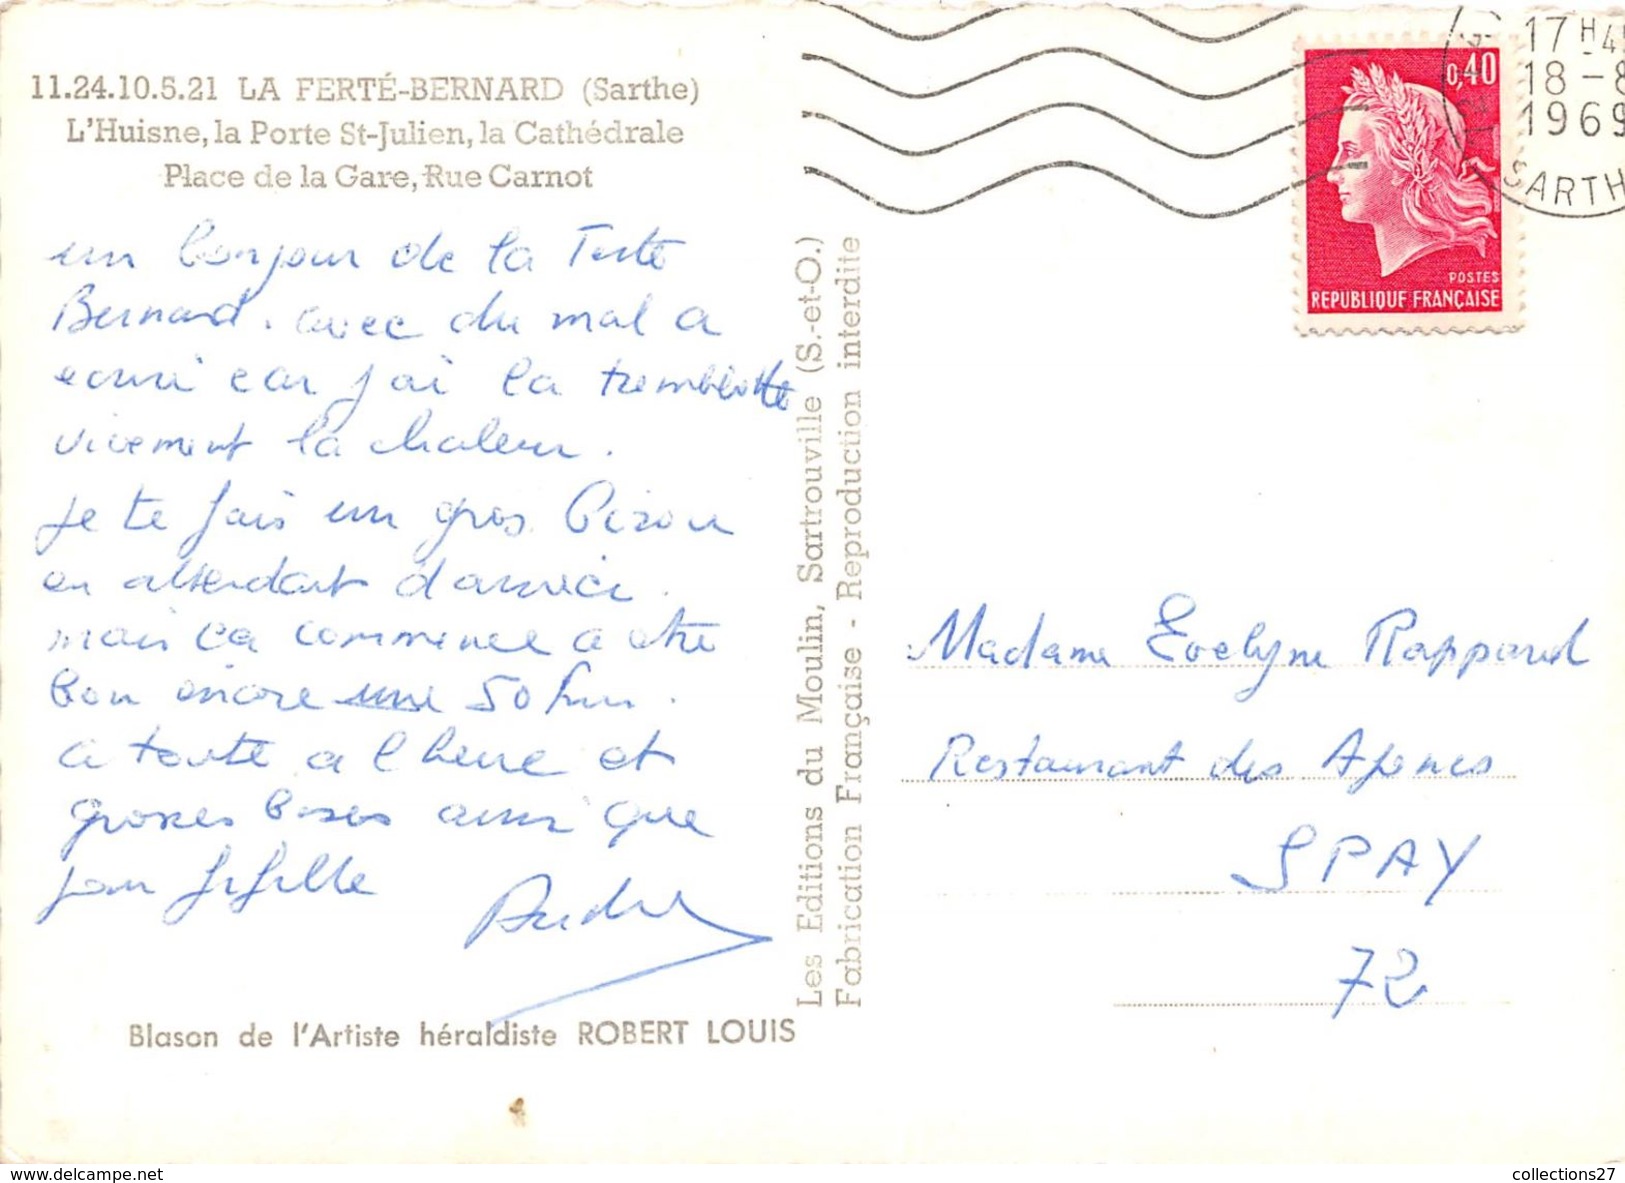 11.24.10.5.21 LA FERTÉ-BERNARD (Sarthe)
L'Huisne, la Porte St-Julien, la Cathédrale
Place de la Gare, Rue Carnot
un bonjour de la Ferte
Bernard. avec du mal a
ecrire car j'ai la tremblotte
vivement la chaleur.
Je te fais un gros bisou
en attendant d'arriver.
mais ca commence a etre
bon encore une 50 km.
a toute a l heure et
grosses bises ainsi que
pour fifille
André
Blason de l'Artiste héraldiste ROBERT LOUIS
Les Editions du Moulin, Sartrouville (S.-et-O.)
Fabrication Française - Reproduction interdite
0,40
POSTES
REPUBLIQUE FRANÇAISE
17 H 45
18 - 8
1969
SARTH
Madame Evelyne Rappard
Restaurant des Apenes
SPAY
72
www.delcampe.net
collections27